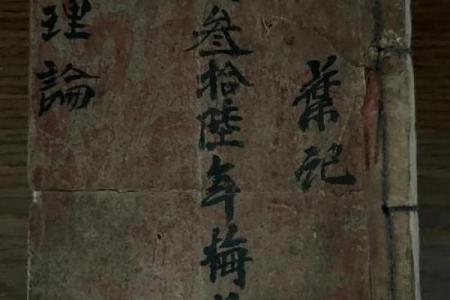 葉記
叁拾陸年梅
理論